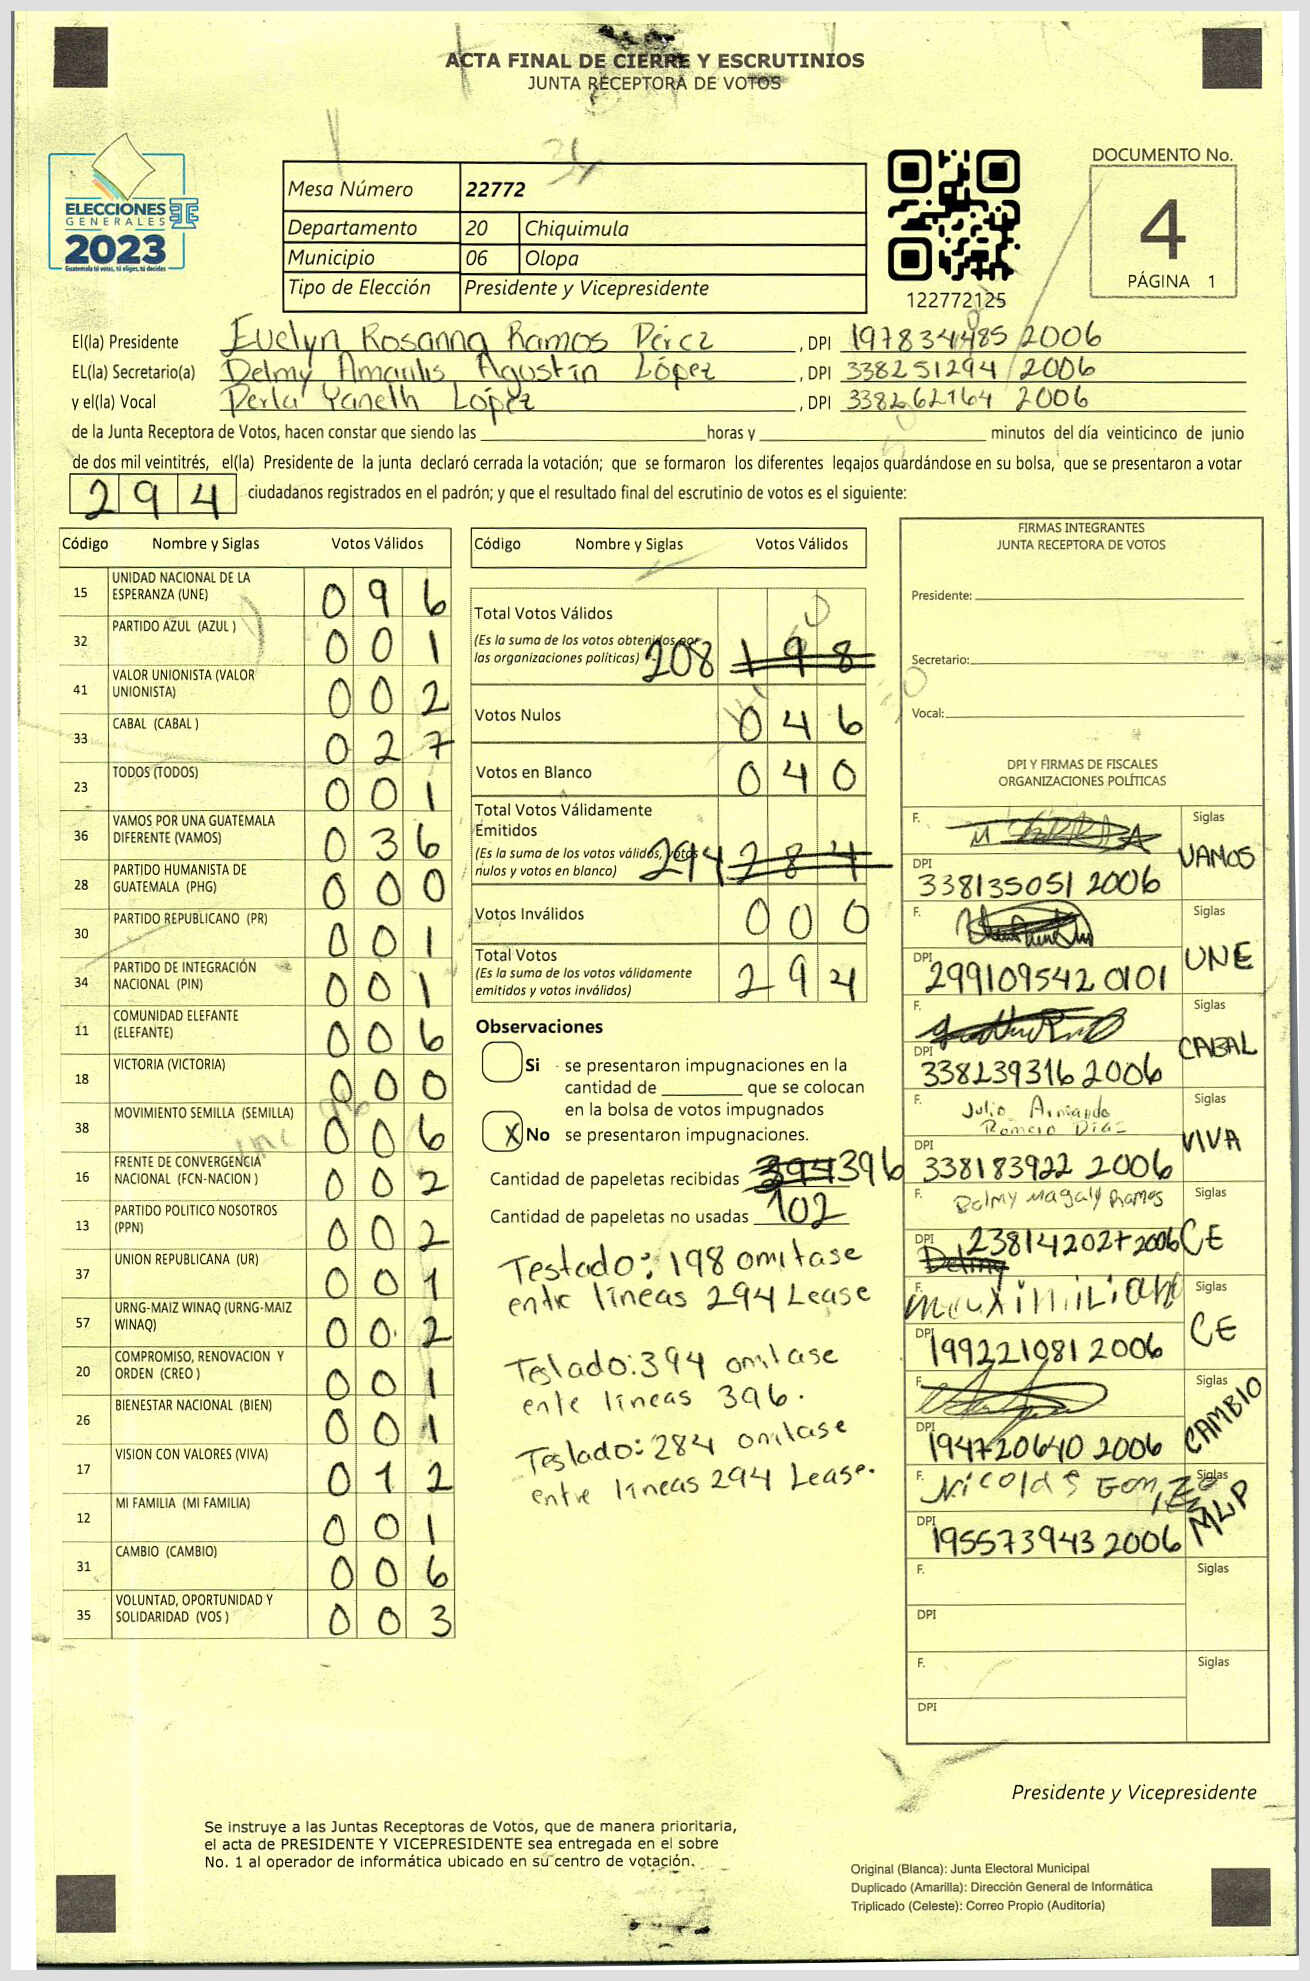 ACTA FINAL DE CIERRE Y ESCRUTINIOS
JUNTA RECEPTORA DE VOTOS
ELECCIONES
GENERALES
2023
Guatemala tú votas, tú eliges, tú decides
TSE
Mesa Número 22772
Departamento 20 Chiquimula
Municipio 06 Olopa
Tipo de Elección Presidente y Vicepresidente
122772125
DOCUMENTO No.
4
PÁGINA 1
El(la) Presidente Evelyn Rosanna Ramos Pérez , DPI 197834485 2006
EL(la) Secretario(a) Delmy Amarilis Agustín López , DPI 338251294 2006
y el(la) Vocal Perla Yaneth López , DPI 338262164 2006
de la Junta Receptora de Votos, hacen constar que siendo las horas y minutos del día veinticinco de junio
de dos mil veintitrés, el(la) Presidente de la junta declaró cerrada la votación; que se formaron los diferentes legajos guardándose en su bolsa, que se presentaron a votar
294 ciudadanos registrados en el padrón; y que el resultado final del escrutinio de votos es el siguiente:
Código Nombre y Siglas Votos Válidos
15 UNIDAD NACIONAL DE LA ESPERANZA (UNE) 096
32 PARTIDO AZUL (AZUL ) 001
41 VALOR UNIONISTA (VALOR UNIONISTA) 002
33 CABAL (CABAL ) 027
23 TODOS (TODOS) 001
36 VAMOS POR UNA GUATEMALA DIFERENTE (VAMOS) 036
28 PARTIDO HUMANISTA DE GUATEMALA (PHG) 000
30 PARTIDO REPUBLICANO (PR) 001
34 PARTIDO DE INTEGRACIÓN NACIONAL (PIN) 001
11 COMUNIDAD ELEFANTE (ELEFANTE) 006
18 VICTORIA (VICTORIA) 000
38 MOVIMIENTO SEMILLA (SEMILLA) 006
16 FRENTE DE CONVERGENCIA NACIONAL (FCN-NACION ) 002
13 PARTIDO POLITICO NOSOTROS (PPN) 002
37 UNION REPUBLICANA (UR) 001
57 URNG-MAIZ WINAQ (URNG-MAIZ WINAQ) 002
20 COMPROMISO, RENOVACION Y ORDEN (CREO ) 001
26 BIENESTAR NACIONAL (BIEN) 001
17 VISION CON VALORES (VIVA) 012
12 MI FAMILIA (MI FAMILIA) 001
31 CAMBIO (CAMBIO) 006
35 VOLUNTAD, OPORTUNIDAD Y SOLIDARIDAD (VOS ) 003
Código Nombre y Siglas Votos Válidos
Total Votos Válidos
(Es la suma de los votos obtenidos por
las organizaciones políticas) 208 198
Votos Nulos 046
Votos en Blanco 040
Total Votos Válidamente
Emitidos
(Es la suma de los votos válidos, votos
nulos y votos en blanco) 294 284
Votos Inválidos 000
Total Votos
(Es la suma de los votos válidamente
emitidos y votos inválidos) 294
Observaciones
Si se presentaron impugnaciones en la
cantidad de que se colocan
en la bolsa de votos impugnados
X No se presentaron impugnaciones.
Cantidad de papeletas recibidas 394 396
Cantidad de papeletas no usadas 102
Testado: 198 omitase
entre líneas 294 Lease
Testado: 394 omitase
ente líneas 396.
Testado: 284 omitase
entre líneas 294 Lease.
FIRMAS INTEGRANTES
JUNTA RECEPTORA DE VOTOS
Presidente:
Secretario:
Vocal:
DPI Y FIRMAS DE FISCALES
ORGANIZACIONES POLÍTICAS
F. Siglas
DPI 338135051 2006 VAMOS
F. Siglas
DPI 299109542 0101 UNE
F. Siglas
DPI 338239316 2006 CABAL
F. Julio Armando Romero Díaz Siglas
DPI 338183922 2006 VIVA
F. Delmy Magaly Ramos Siglas
DPI 238142027 2006 CE
Delmy
F. Maximiliano Siglas
DPI 199221081 2006 CE
F. Siglas
DPI 194720640 2006 CAMBIO
F. Nicolas Siglas
DPI 195573943 2006 MLP
F. Siglas
DPI
F. Siglas
DPI
Presidente y Vicepresidente
Se instruye a las Juntas Receptoras de Votos, que de manera prioritaria,
el acta de PRESIDENTE Y VICEPRESIDENTE sea entregada en el sobre
No. 1 al operador de informática ubicado en su centro de votación.
Original (Blanca): Junta Electoral Municipal
Duplicado (Amarilla): Dirección General de Informática
Triplicado (Celeste): Correo Propio (Auditoría)